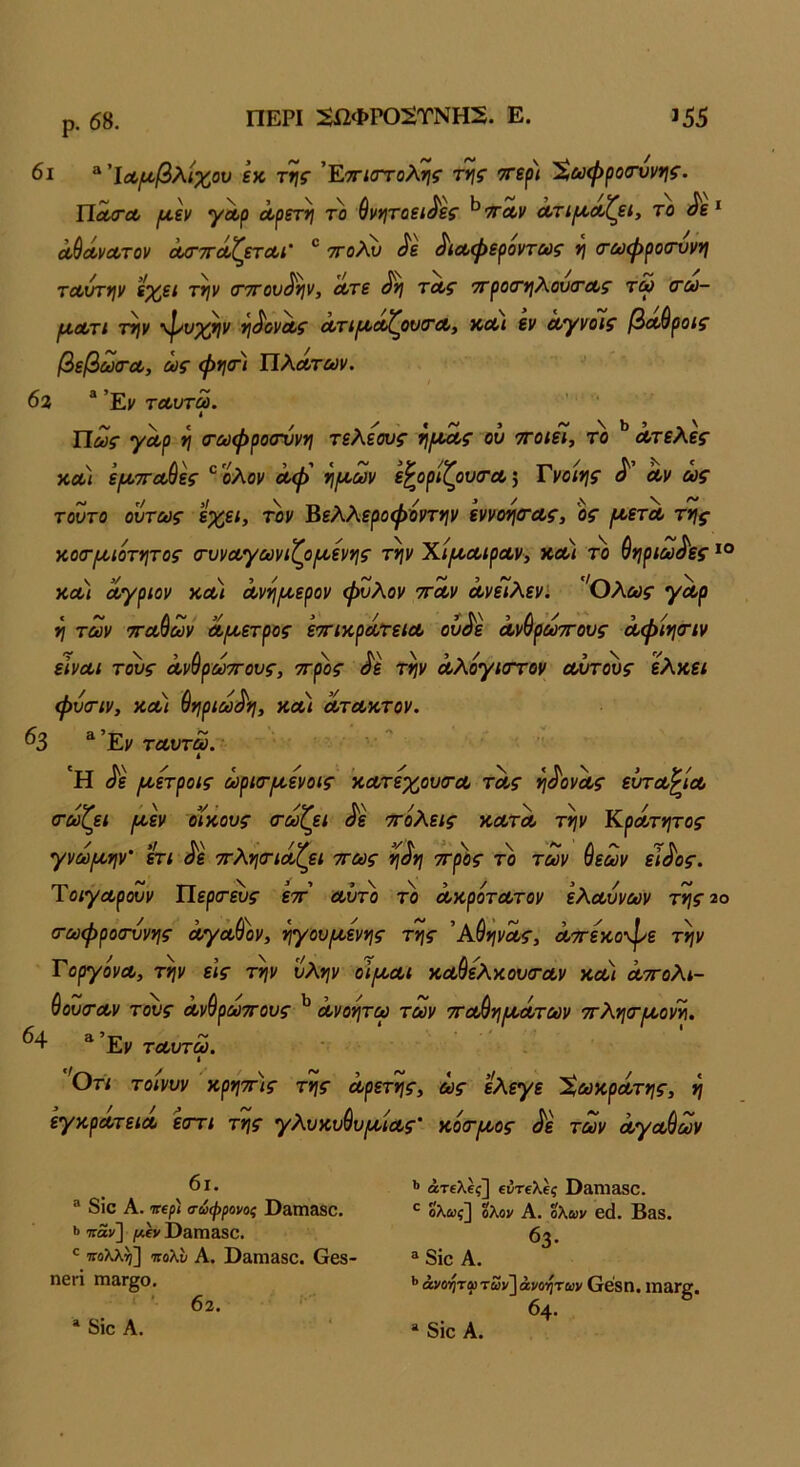 p. 68. ΠΕΡΙ ΣΩΦΡΟΣΥΝΗΣ. Ε. 155
61 ᵃ Ἰαμβλίχου ἐκ τῆς Ἐπιστολῆς τῆς περὶ Σωφροσύνης.
Πᾶσα μὲν γὰρ ἀρετὴ τὸ θνητοειδὲς ᵇ πᾶν ἀτιμάζει, τὸ δὲ 1
ἀθάνατον ἀσπάζεται· ᶜ πολὺ δὲ διαφερόντως ἡ σωφροσύνη
ταύτην ἔχει τὴν σπουδὴν, ἅτε δὴ τὰς προσηλούσας τῷ σώ-
ματι τὴν ψυχὴν ἡδονὰς ἀτιμάζουσα, καὶ ἐν ἁγνοῖς βάθροις
βεβῶσα, ὥς φησὶ Πλάτων.
62 ᵃ Ἐν ταυτῷ.
Πῶς γὰρ ἡ σωφροσύνη τελέους ἡμᾶς οὐ ποιεῖ, τὸ ᵇ ἀτελὲς
καὶ ἐμπαθὲς ᶜ ὅλον ἀφ' ἡμῶν ἐξορίζουσα; Γνοίης δ' ἂν ὡς
τοῦτο οὕτως ἔχει, τὸν Βελλεροφόντην ἐννοήσας, ὃς μετὰ τῆς
κοσμιότητος συναγωνιζομένης τὴν Χίμαιραν, καὶ τὸ θηριῶδες 10
καὶ ἄγριον καὶ ἀνήμερον φῦλον πᾶν ἀνεῖλεν. Ὅλως γὰρ
ἡ τῶν παθῶν ἄμετρος ἐπικράτεια οὐδὲ ἀνθρώπους ἀφίησιν
εἶναι τοὺς ἀνθρώπους, πρὸς δὲ τὴν ἀλόγιστον αὐτοὺς ἕλκει
φύσιν, καὶ θηριώδη, καὶ ἄτακτον.
63 ᵃ Ἐν ταυτῷ.
Ἡ δὲ μέτροις ὡρισμένοις κατέχουσα τὰς ἡδονὰς εὐταξία
σώζει μὲν οἴκους σώζει δὲ πόλεις κατὰ τὴν Κράτητος
γνώμην· ἔτι δὲ πλησιάζει πως ἤδη πρὸς τὸ τῶν θεῶν εἶδος.
Τοιγαροῦν Περσεὺς ἐπ' αὐτὸ τὸ ἀκρότατον ἐλαύνων τῆς 20
σωφροσύνης ἀγαθὸν, ἡγουμένης τῆς Ἀθηνᾶς, ἀπέκοψε τὴν
Γοργόνα, τὴν εἰς τὴν ὕλην οἶμαι καθέλκουσαν καὶ ἀπολι-
θοῦσαν τοὺς ἀνθρώπους ᵇ ἀνοήτῳ τῶν παθημάτων πλησμονῇ.
64 ᵃ Ἐν ταυτῷ.
Ὅτι τοίνυν κρηπὶς τῆς ἀρετῆς, ὡς ἔλεγε Σωκράτης, ἡ
ἐγκράτειά ἐστι τῆς γλυκυθυμίας· κόσμος δὲ τῶν ἀγαθῶν
61.
ᵃ Sic A. περὶ σώφρονος Damasc.
ᵇ πᾶν] μὲν Damasc.
ᶜ πολλὴ] πολὺ A. Damasc. Ges-
neri margo.
62.
ᵃ Sic A.
ᵇ ἀτελὲς] εὐτελὲς Damasc.
ᶜ ὅλως] ὅλον A. ὅλων ed. Bas.
63.
ᵃ Sic A.
ᵇ ἀνοήτῳ τῶν] ἀνοήτων Gesn. marg.
64.
ᵃ Sic A.